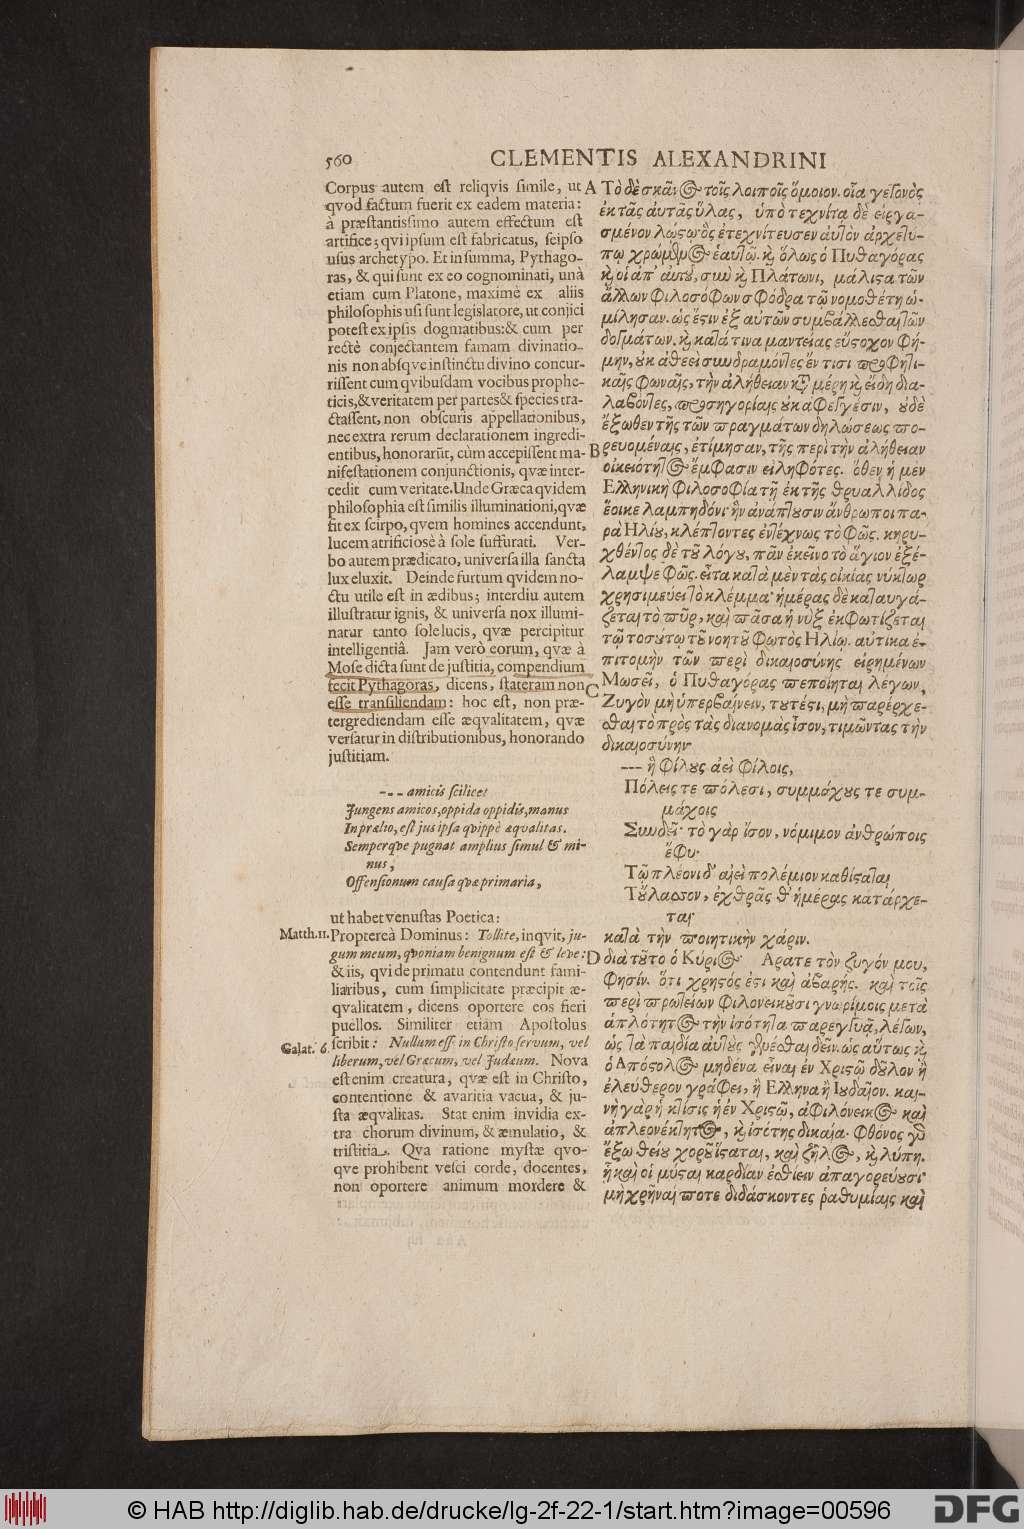 560
CLEMENTIS ALEXANDRINI
Corpus autem est reliqvis simile, ut
qvod factum fuerit ex eadem materia:
à præstantissimo autem effectum est
artifice; qvi ipsum est fabricatus, seipso
usus archetypo. Et in summa, Pythago-
ras, & qui sunt ex eo cognominati, unà
etiam cum Platone, maximè ex aliis
philosophis usi sunt legislatore, ut conjici
potest ex ipsis dogmatibus: & cum per
rectè conjectantem famam divinatio-
nis non absqve instinctu divino concur-
rissent cum qvibusdam vocibus prophe-
ticis, & veritatem per partes & species tra-
ctassent, non obscuris appellationibus,
nec extra rerum declarationem ingredi-
entibus, honorarūt, cùm accepissent ma-
nifestationem conjunctionis, qvæ inter-
cedit cum veritate. Unde Græca qvidem
philosophia est similis illuminationi, qvæ
fit ex scirpo, qvem homines accendunt,
lucem atrificiosè à sole suffurati. Ver-
bo autem prædicato, universa illa sancta
lux eluxit. Deinde furtum qvidem no-
ctu utile est in ædibus; interdiu autem
illustratur ignis, & universa nox illumi-
natur tanto sole lucis, qvæ percipitur
intelligentiâ. Jam verò eorum, qvæ à
Mose dicta sunt de justitia, compendium
fecit Pythagoras, dicens, stateram non
esse transiliendam: hoc est, non præ-
tergrediendam esse æqvalitatem, qvæ
versatur in distributionibus, honorando
justitiam.
--- amicis scilicet
Jungens amicos, oppida oppidis, manus
In prælio, est jus ipsa qvippè æqvalitas.
Semperqve pugnat amplius simul & mi-
nus,
Offensionum causa qvæ primaria,
ut habet venustas Poetica:
Matth. 11. Propterea Dominus: Tollite, inqvit, ju-
gum meum, qvoniam benignum est & leve:
& iis, qvi de primatu contendunt fami-
liaribus, cum simplicitate præcipit æ-
qvalitatem, dicens oportere eos fieri
puellos. Similiter etiam Apostolus
Galat. 6. scribit: Nullum esse in Christo servum, vel
liberum, vel Græcum, vel Judæum. Nova
est enim creatura, qvæ est in Christo,
contentione & avaritia vacua, & ju-
sta æqvalitas. Stat enim invidia ex-
tra chorum divinum, & æmulatio, &
tristitia. Qva ratione mystæ qvo-
qve prohibent vesci corde, docentes,
non oportere animum mordere &
A Τὸ δὲ σκῆνος τοῖς λοιποῖς ὅμοιον. οἷα γεγονὸς
ἐκ τᾶς αὐτᾶς ὕλας, ὑπὸ τεχνίτα δὲ εἰργα-
σμένον λώςω· ὃς ἐτεχνίτευσεν αὐτὸν ἀρχετύ-
πῳ χρώμενος ἑαυτῷ. καὶ ὅλως ὁ Πυθαγόρας
καὶ οἱ ἀπ' αὐτοῦ, σὺν καὶ Πλάτωνι, μάλιστα τῶν
ἄλλων φιλοσόφων σφόδρα τῶ νομοθέτη ὡ-
μίλησαν. ὡς ἔστιν ἐξ αὐτῶν συμβάλλεσθαι τῶν
δογμάτων. καὶ κατά τινα μαντείας εὔστοχον φή-
μην, οὐκ ἀθεεὶ συνδραμόντες ἔν τισι προφητι-
καῖς φωναῖς, τὴν ἀλήθειαν κατὰ μέρη καὶ εἴδη δια-
λαβόντες, προσηγορίαις οὐκ ἀφεγγέσιν, οὐδὲ
ἔξωθεν τῆς τῶν πραγμάτων δηλώσεως πο-
B ρευομέναις, ἐτίμησαν, τῆς περὶ τὴν ἀλήθειαν
οἰκειότητος ἔμφασιν εἰληφότες. ὅθεν ἡ μὲν
Ἑλληνικὴ φιλοσοφία τῇ ἐκ τῆς θρυαλλίδος
ἔοικε λαμπηδόνι· ἣν ἀνάπτουσιν ἄνθρωποι πα-
ρὰ Ἡλίου, κλέπτοντες ἐντέχνως τὸ φῶς. κηρυ-
χθέντος δὲ τοῦ λόγου, πᾶν ἐκεῖνο τὸ ἅγιον ἐξέ-
λαμψε φῶς. εἶτα κατὰ μὲν τὰς οἰκίας νύκτωρ
χρησιμεύει τὸ κλέμμα· ἡμέρας δὲ καταυγά-
ζεται τὸ πῦρ, καὶ πᾶσα ἡ νὺξ ἐκφωτίζεται
τῷ τοσούτῳ τοῦ νοητοῦ φωτὸς Ἡλίῳ. αὐτίκα ἐ-
πιτομὴν τῶν περὶ δικαιοσύνης εἰρημένων
C Μωσεῖ, ὁ Πυθαγόρας πεποίηται λεγων,
Ζυγὸν μὴ ὑπερβαίνειν, τουτέστι, μὴ παρέρχε-
σθαι τὸ πρὸς τὰς διανομὰς ἶσον, τιμῶντας τὴν
δικαιοσύνην·
--- ἣ φίλους ἀεὶ φίλοις,
Πόλεις τε πόλεσι, συμμάχους τε συμ-
μάχοις
Συνδεῖ· τὸ γὰρ ἴσον, νόμιμον ἀνθρώποις
ἔφυ·
Τῷ πλέονι δ' αἰεὶ πολέμιον καθίσταται
Τοὔλασσον, ἐχθρᾶς θ' ἡμέρας κατάρχε-
ται·
κατὰ τὴν ποιητικὴν χάριν.
D διὰ τοῦτο ὁ Κύριος· Αρατε τὸν ζυγόν μου,
φησίν. ὅτι χρηστός ἐστι καὶ ἀβαρής. καὶ τοῖς
περὶ πρωτείων φιλονεικοῦσι γνωρίμοις μετὰ
ἁπλότητος τὴν ἰσότητα παρεγγυᾷ, λέγων,
ὡς τὰ παιδία αὐτοὺς γενέσθαι δεῖν. ὡς αὔτως καὶ
ὁ Ἀπόστολος μηδένα εἶναι ἐν Χριστῷ δοῦλον ἢ
ἐλεύθερον γράφει, ἢ Ἕλληνα ἢ Ιουδαῖον. και-
νὴ γὰρ ἡ κτίσις ἡ ἐν Χριστῷ, ἀφιλόνεικος καὶ
ἀπλεονέκτητος, καὶ ἰσότης δικαία. φθόνος γὰρ
ἔξω θείου χοροῦ ἵσταται, καὶ ζῆλος, καὶ λύπη.
ᾗ καὶ οἱ μύσται καρδίαν ἐσθίειν ἀπαγορεύουσι·
μὴ χρῆναί ποτε διδάσκοντες ῥαθυμίαις καὶ
© HAB http://diglib.hab.de/drucke/lg-2f-22-1/start.htm?image=00596
DFG